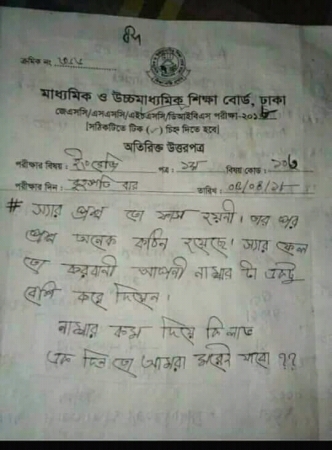 ক্রমিক নং
মাধ্যমিক ও উচ্চমাধ্যমিক শিক্ষা বোর্ড, ঢাকা
জেএসসি/এসএসসি/এইচএসসি/ডিআইবিএস পরীক্ষা-২০১৮
[সঠিকটিতে টিক (✓) চিহ্ন দিতে হবে]
অতিরিক্ত উত্তরপত্র
পরীক্ষার বিষয় : ইংরেজি পত্র : ১ম বিষয় কোড : ১০৭
পরীক্ষার দিন : বৃহস্পতি বার তারিখ : ০৫/০৪/১৮
# স্যার প্রশ্ন তো ফাঁস হয়নী। তার পর
প্রশ্ন অনেক কঠিন হয়েছে। স্যার ফেল
তো করবনী আপনী নাম্বার টা একটু
বেশি করে দিয়েন।
নাম্বার কম দিয়ে কি লাভ
এক দিন তো আমরা মরেই যাবো ??